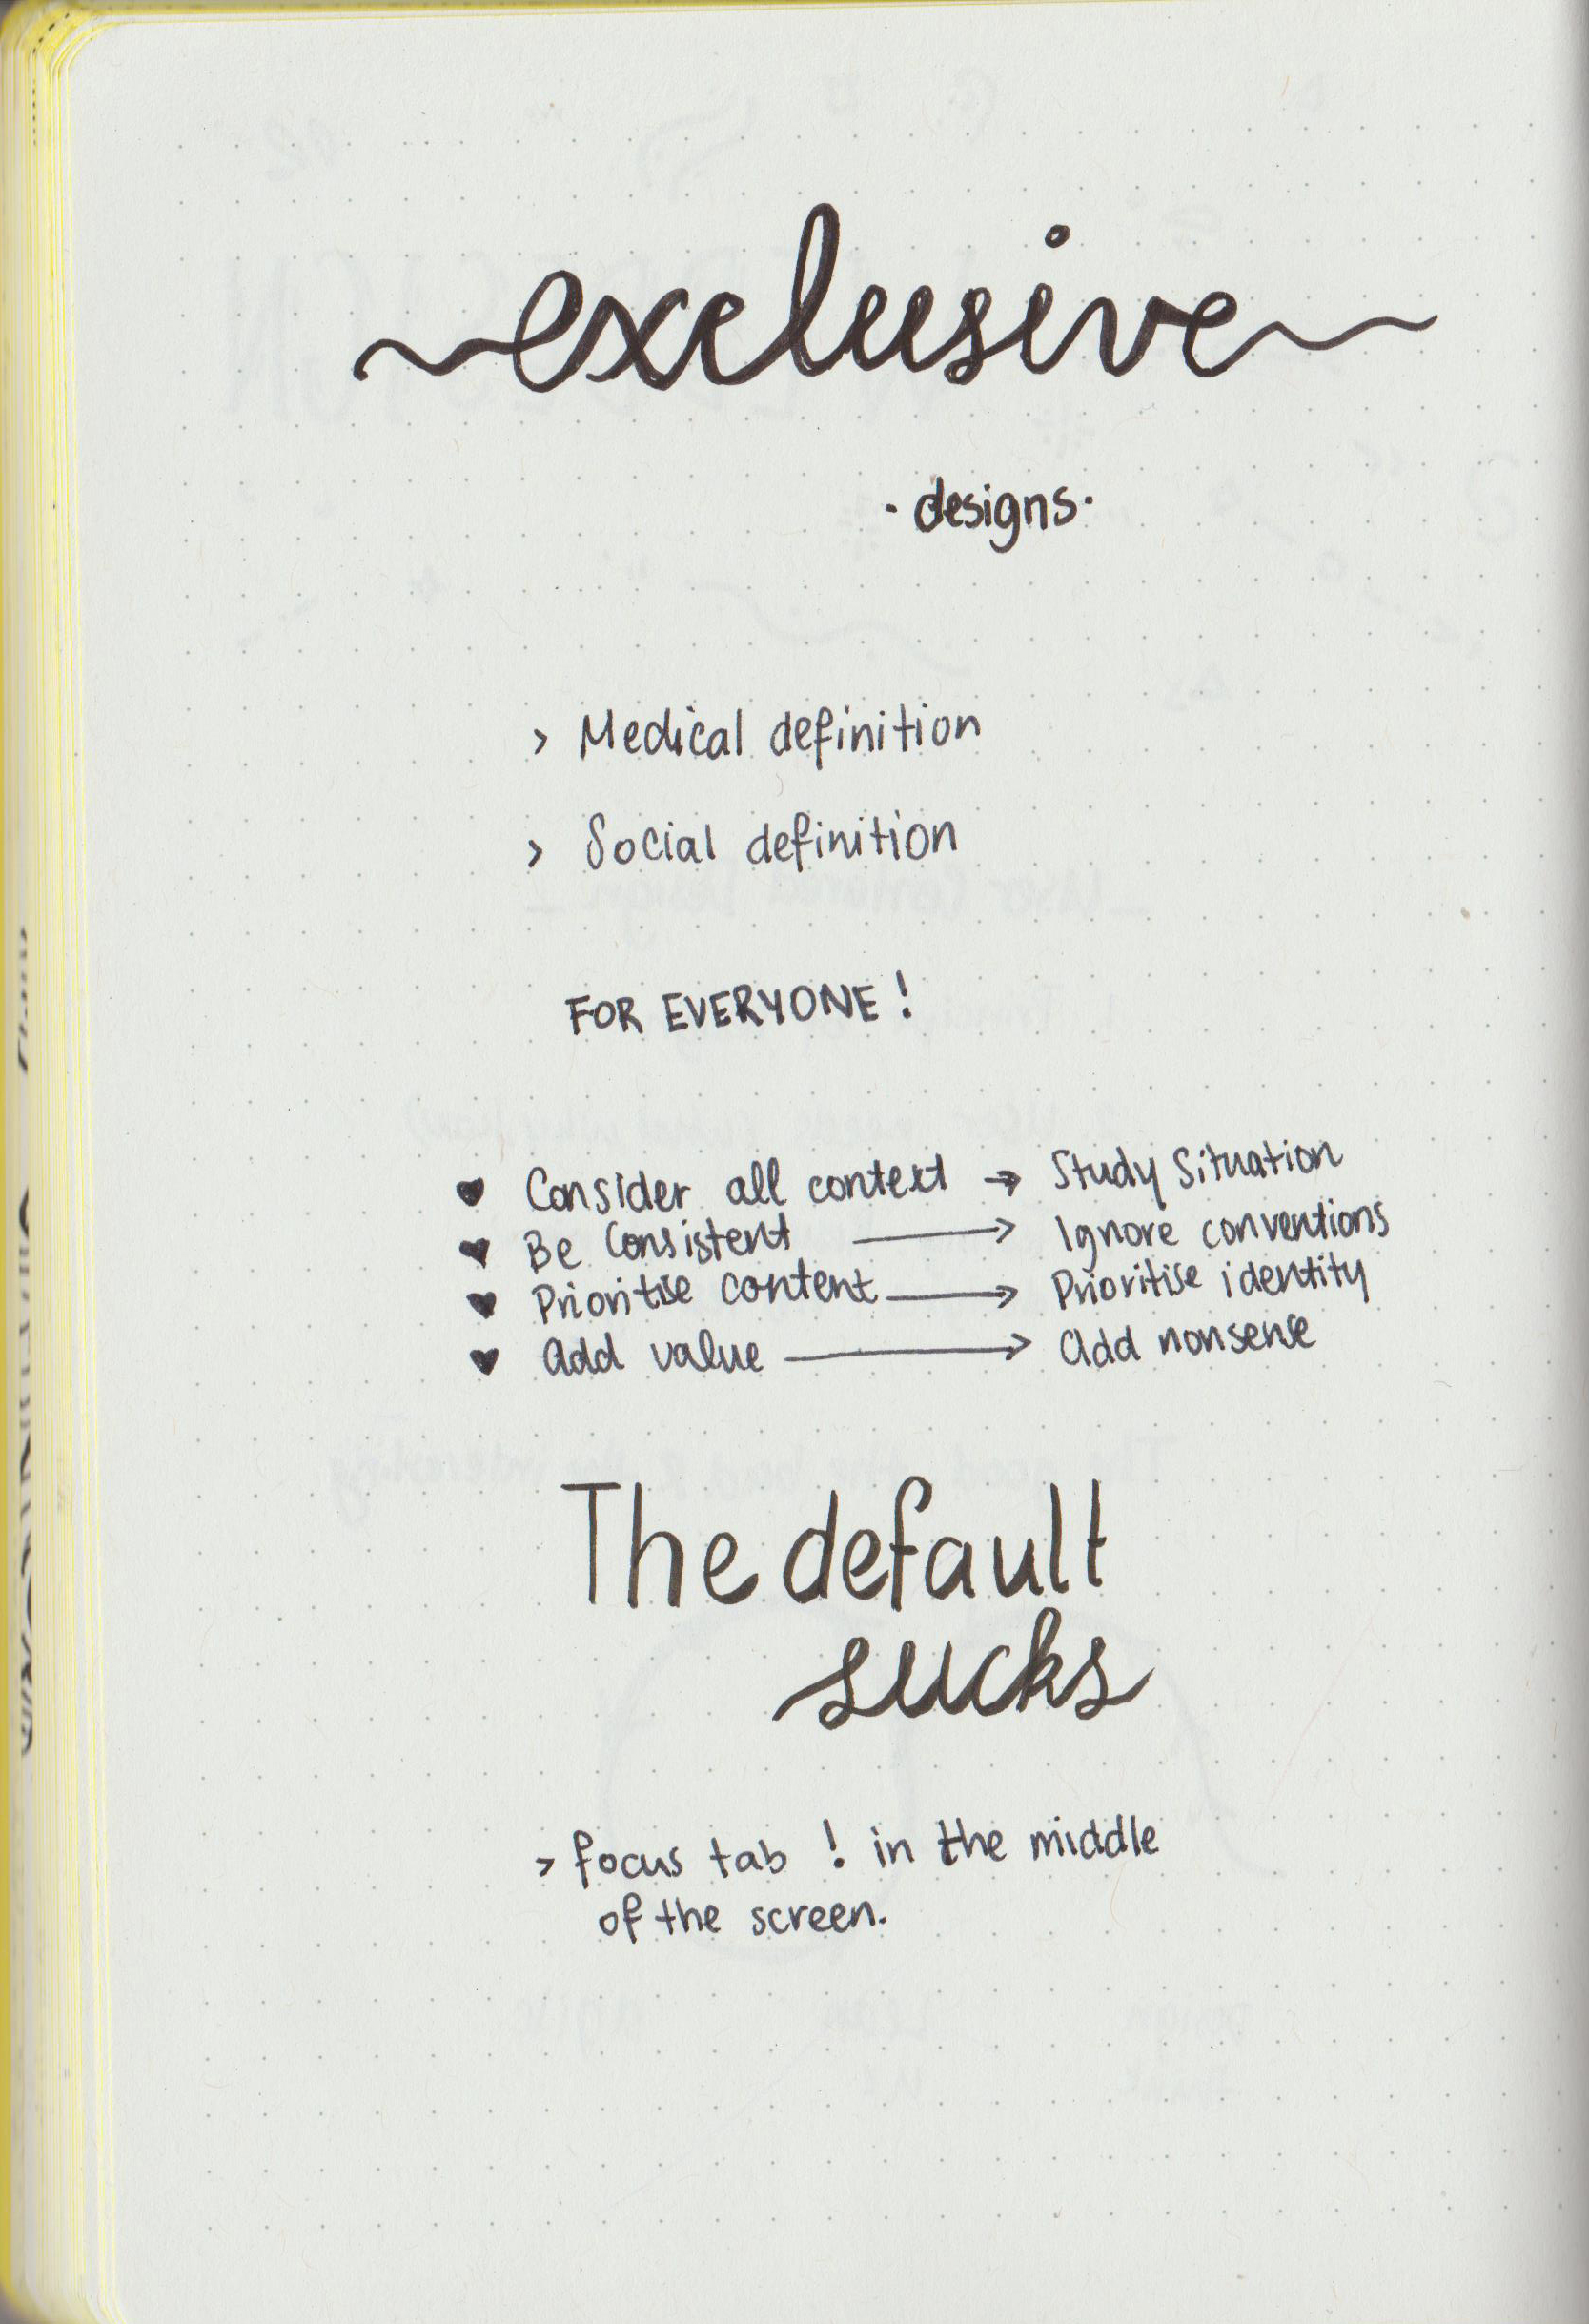 exclusive
· designs ·
> Medical definition
> Social definition
FOR EVERYONE !
♥ Consider all context → Study Situation
♥ Be Consistent → Ignore conventions
♥ Prioritise content → Prioritise identity
♥ Add value → Add nonsense
The default
sucks
> focus tab ! in the middle
of the screen.